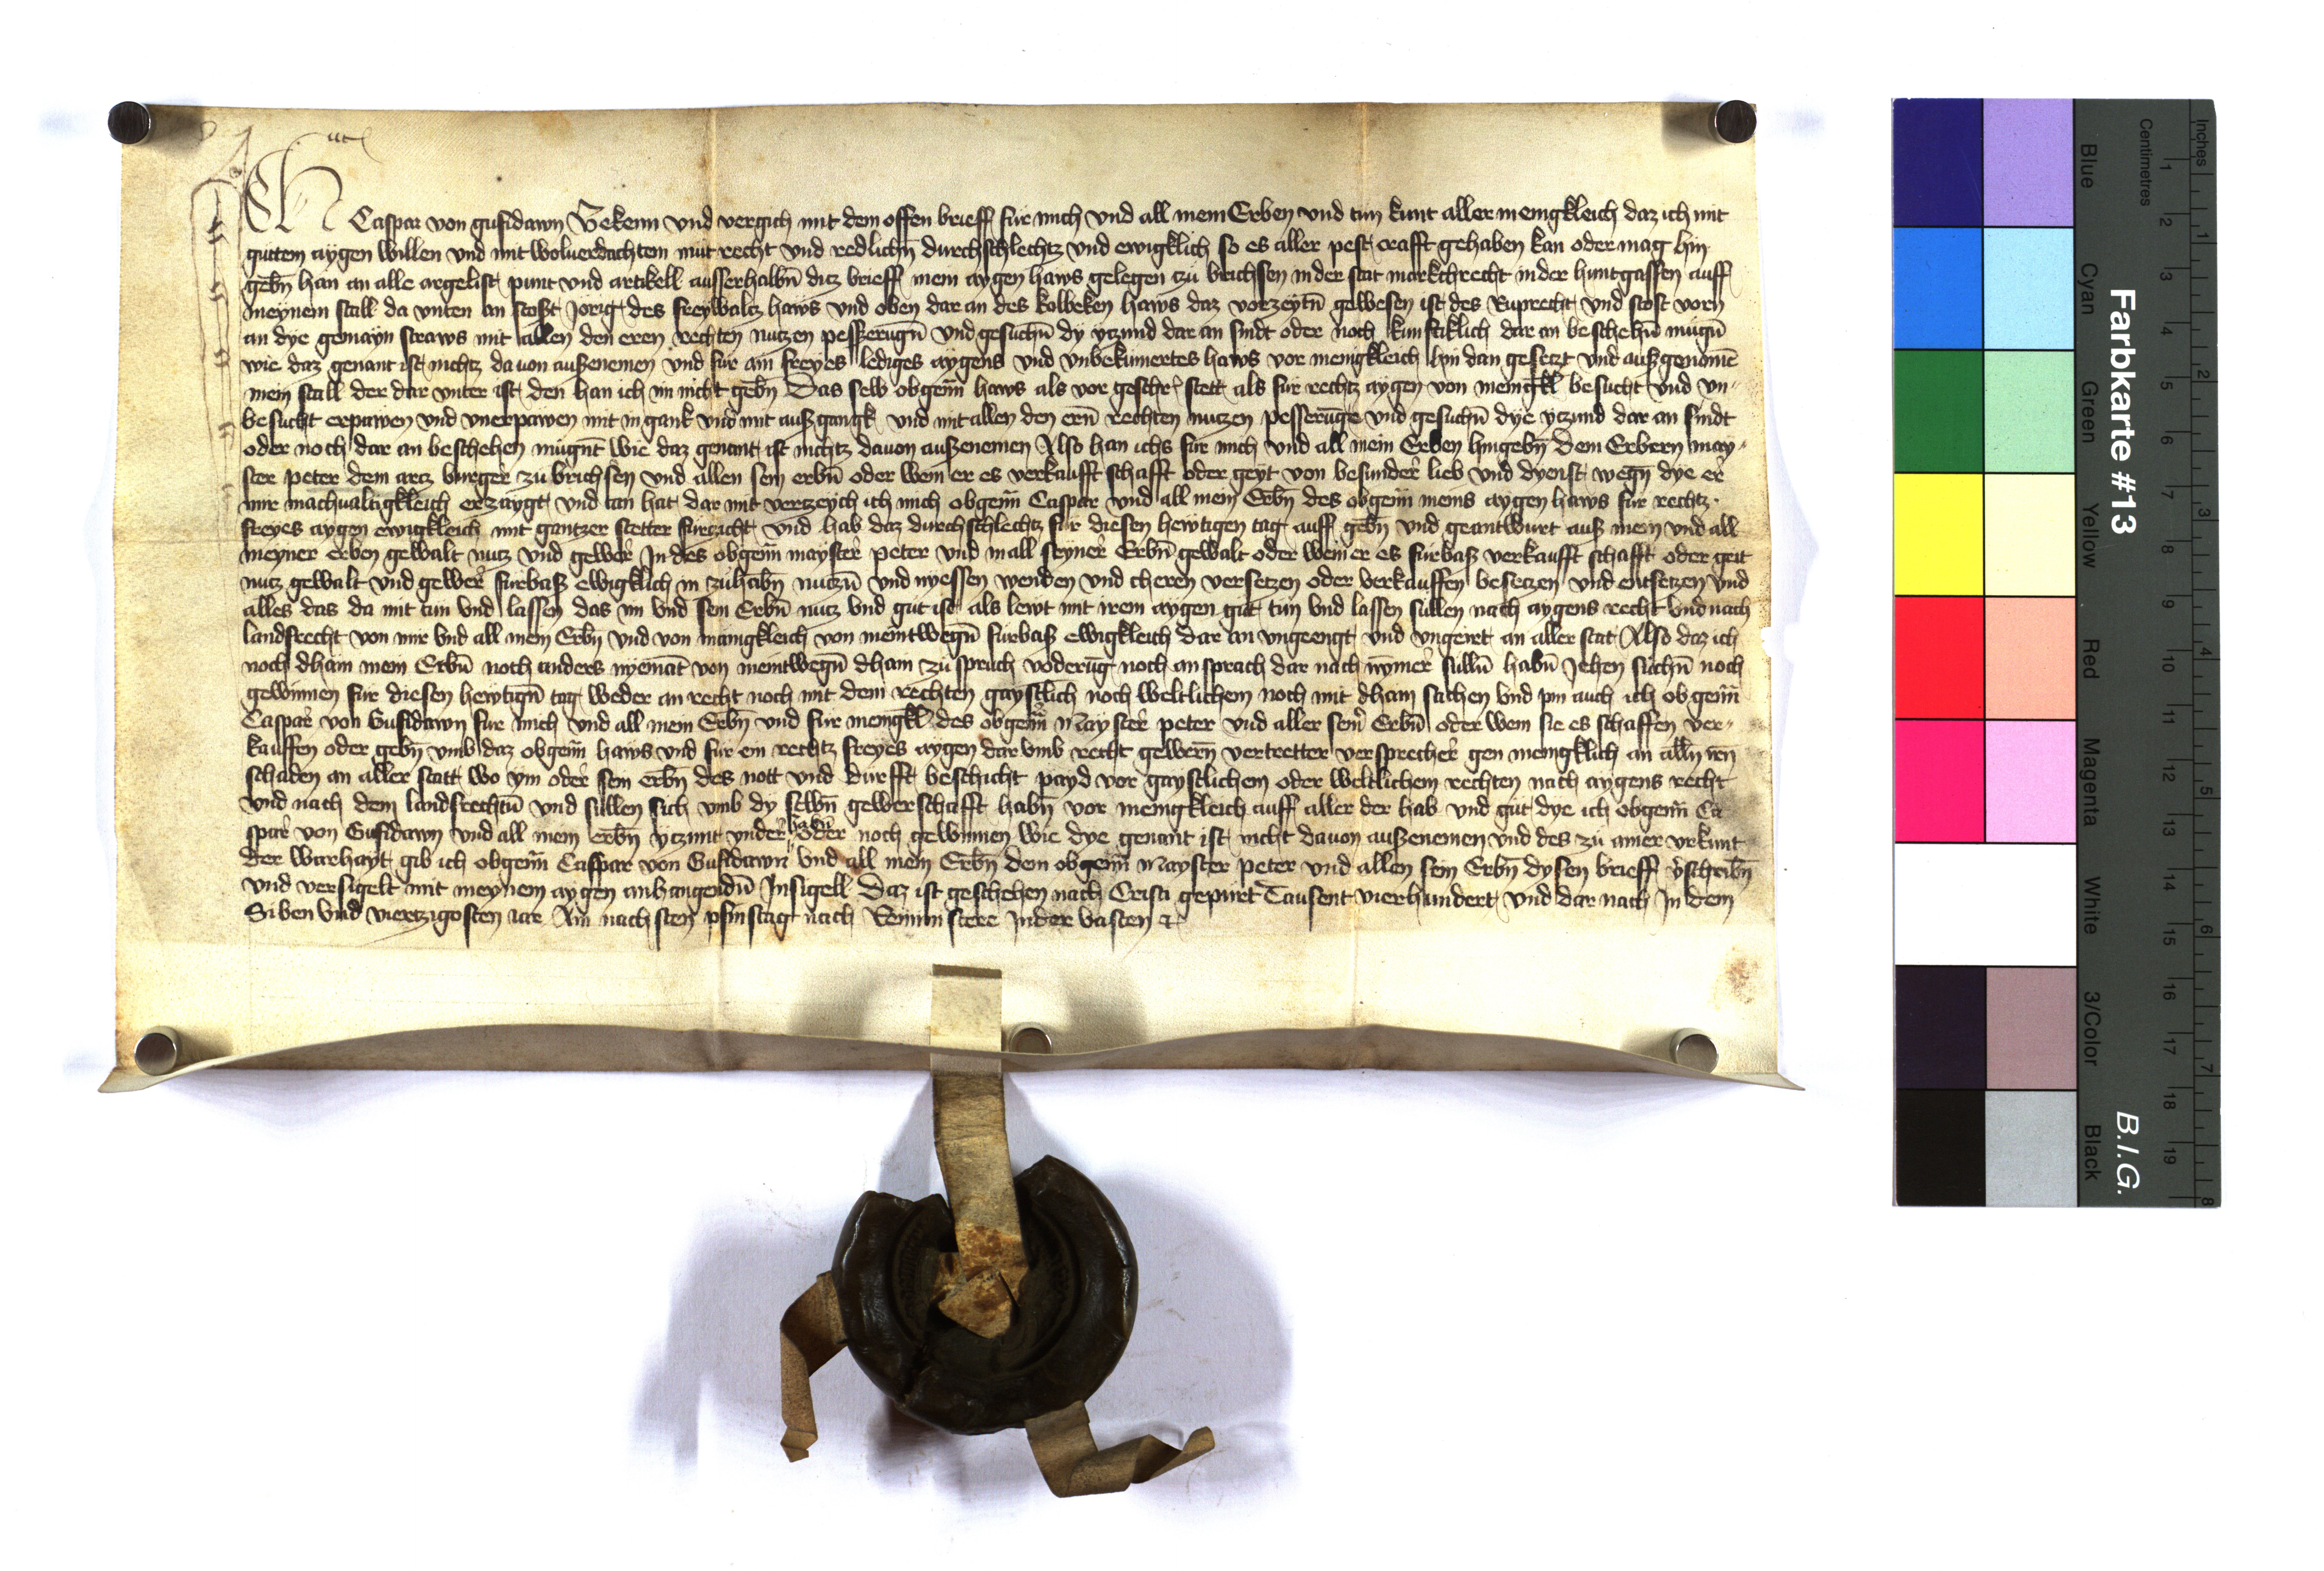 Ich Caspar von gufidawn Bekenn vnd vergich mit dem offen brieff fur mich vnd all mein Erben vnd tun kunt aller menigkleich daz ich mit
gutten aygen willen vnd mit woluerdachtem mut recht vnd redlichn̄ durchschlechtz vnd ewigklich so es aller pest crafft gehaben kan oder mag hin
gebn̄ han an alle argelist punt vnd artikell ausserhalbn̄ ditz brieff mein aygen haws gelegen zu brichsen in der stat markchrecht in der huntgassen auff
meynem stall da vnten an stost Jorig des freywaltz haws vnd oben dar an des kolbeken haws daz vorzeytn̄ gewesen ist des Ruprecht vnd stost vorn
an dye gemayn strass mit allen den eren rechten nutzen pesserugn̄ vnd gesuchn̄ dy yczund dar an sindt oder noch kunfticklich dar an beschehn̄ mugn̄
wie daz genant ist nichtz da von auszenemen vnd fur ain freyes lediges aygens vnd vnbekumertes haws vor menigkleich hin dan gesetzt vnd auszgenomē
mein stall der dar vnter ist den han ich im nicht gebn̄ Das selb obgen̄m haws als vor geschr stett als fur rechtz aygen von meingkl besucht vnd vn-
besucht erpawen vnd vnerpawen mit in gank vnd mit ausz gangk vnd mit allen den ern̄ rechten nutzen pesserūge vnd gesuchn̄ dye yczund dar an sindt
oder noch dar an beschehen mugnt wie daz genant ist nichtz dauon auszenemen Also han ichs fur mich vnd all mein Erben hingebn̄ dem Erbern may-
ster peter dem arcz burger zu brichsen vnd allen sein erbn̄ oder wem er es verkaufft schafft oder geyt von besunder lieb vnd dyenst wegn̄ dye er
mir machualtigkleich erzaygt vnd tan hat dar mit verzeych ich mich obgen̄m Caspar vnd all mein Erbn̄ des obgen̄m meins aygen haws fur rechtz
freyes aygen ewigkleich mit gantzer stetter furzicht vnd hab daz durchschlechtz fur diesen hewtigen tag auff gebn̄ vnd geantwurt ausz mein vnd all
meyner erben gewalt nutz vnd gewer In des obgen̄m mayster peter vnd in all seyner Erbn̄ gewalt oder wem er es furbasz verkaufft schafft oder geit
nutz gewalt vnd gewer furbasz ewigklich in zuhabn̄ nutzn̄ vnd nyessen wenden vnd cheren versetzen oder verkauffen besetzen vnd entsetzen vnd
alles das da mit tun vnd lassen das im vnd sein Erbn̄ nutz vnd gut ist als lewt mit irem aygen gut tun vnd lassen sullen nach aygens recht vnd nach
landsrecht von mir vnd all mein Erbn̄ vnd von manigkleich von meintwegn̄ furbasz ewigkleich dar an vngeengt vnd vngeirt an aller stat Also daz ich
noch dhain mein Erbn̄ noch anders nyemāt von meintwegn̄ dhain zu spruch voderūg noch an sprach dar nach nymer sulln̄ habn̄ Jehen suchn̄ noch
gewinnen fur diesen hewtign̄ tag weder an recht noch mit dem rechten gaystlich noch weltlichem noch mit dhain sachen vnd pin auch ich obgen̄m
Caspar von Gufidawn fur mich vnd all mein Erbn̄ vnd fur mengkl des obgen̄m mayster peter vnd aller sein Erbn̄ oder wem sie es schaffen ver-
kauffen oder gebn̄ vmb daz obgen̄m haws vnd fur ein rechtz freyes aygen dar vmb recht gewern̄ vertretter versprecher gen menigklich an alln̄ iren
schaden an aller statt wo ym oder sein erbn̄ des nott vnd durfft beschicht payd vor gaystlichem oder weltlichem rechten nach aygens recht
vnd nach dem landsrechtn̄ vnd sullen sich vmb dy selbn̄ gewerschafft habn̄ vor menigkleich auff aller der hab vnd gut dye ich obgen̄m Ca
spar von Gufidawn vnd all mein erbn̄ yczunt vnder habn̄ oder noch gewinnen wie dye genant ist nicht dauon auszenemen vnd des zu ainer vrkunt
der warhayt gib ich obgen̄m Caspar von Gufidawn vnd all mein Erbn̄ dem obgen̄m Mayster peter vnd allen sein Erbn̄ dysen brieff v̓schribn̄
vnd versigelt mit meynem aygen anhangendn̄ Insigell Daz ist geschehen nach Cristi gepurt Tausent vierhundert vnd dar nach In dem
Siben vnd viertzigosten iar Am nachsten pfinstag nach Reminiscere in der vasten etc
Farbkarte #13
B.I.G.
Inches
Centimetres
Blue
Cyan
Green
Yellow
Red
Magenta
White
3/Color
Black
1 2 3 4 5 6 7 8 9 10 11 12 13 14 15 16 17 18 19
1 2 3 4 5 6 7 8